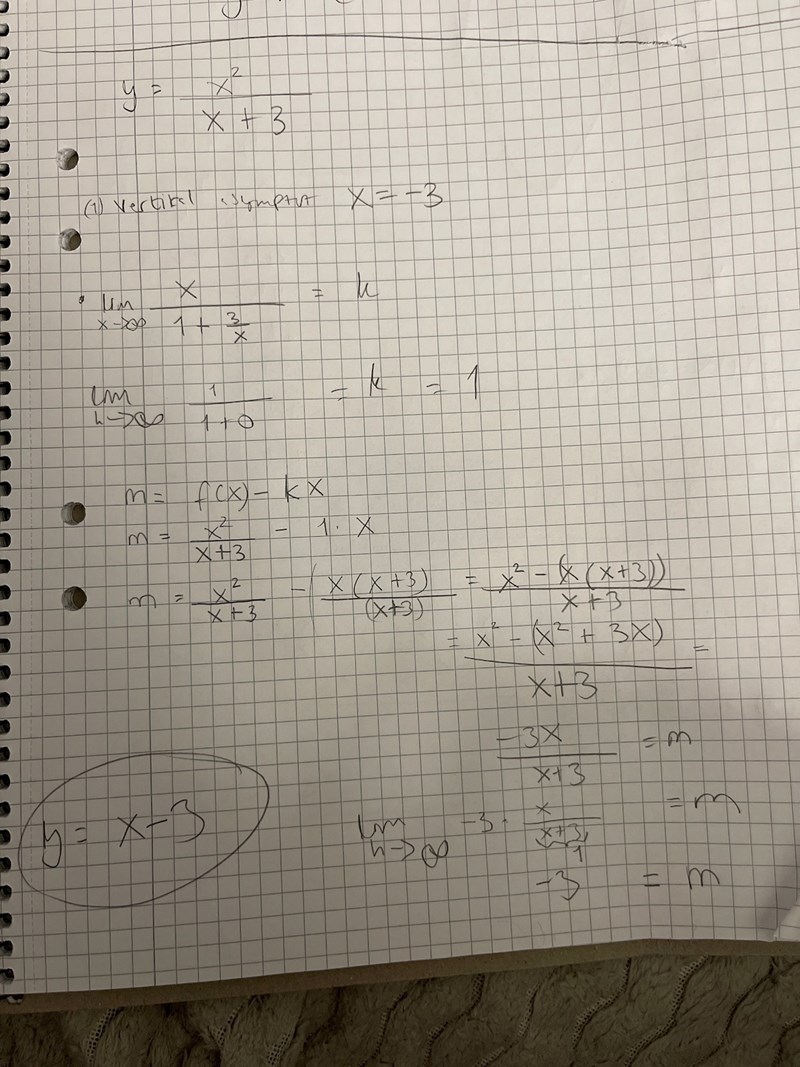 y = x² / (x + 3)
(1) Vertikal asymptot x = -3
• lim x→∞ x / (1 + 3/x) = k
lim n→∞ 1 / (1 + 0) = k = 1
m = f(x) - kx
m = x² / (x+3) - 1 · x
m = x² / (x+3) - (x(x+3) / (x+3) = x² - (x(x+3)) / x+3
= x² - (x² + 3x) / x+3 =
-3x / x+3 = m
lim n→∞ -3 · x / x+3 = m
1
-3 = m
y = x-3